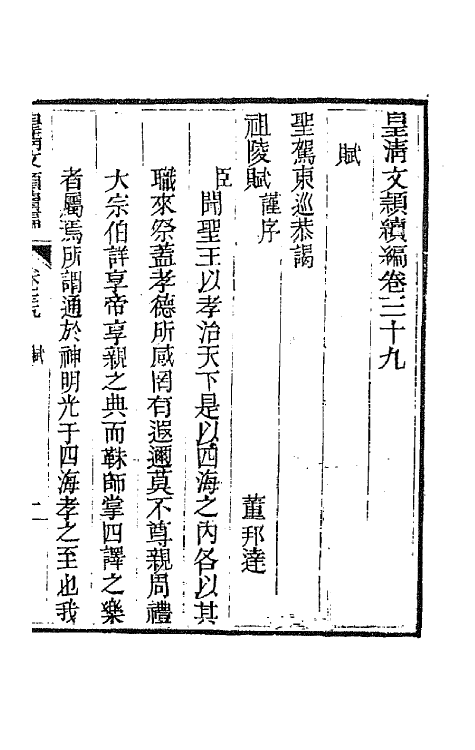 皇淸文穎續編卷三十九
賦
聖駕東巡恭謁
祖陵賦謹序
董邦達
臣聞聖王以孝治天下是以四海之內各以其
職來祭蓋孝德所感罔有遐邇莫不尊親周禮
大宗伯詳享帝享親之典而韎師掌四譯之樂
者屬焉所謂通於神明光于四海孝之至也我
皇淸文穎續編
卷三十九 賦